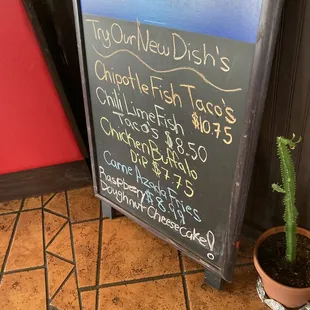 Try Our New Dish's
Chipotle Fish Taco's
$10.75
Chili Lime Fish
Taco's $8.50
Chicken Buffalo
Dip $7.75
Carne Azada Fries
$8.99
Raspberry
Doughnut Cheesecake!